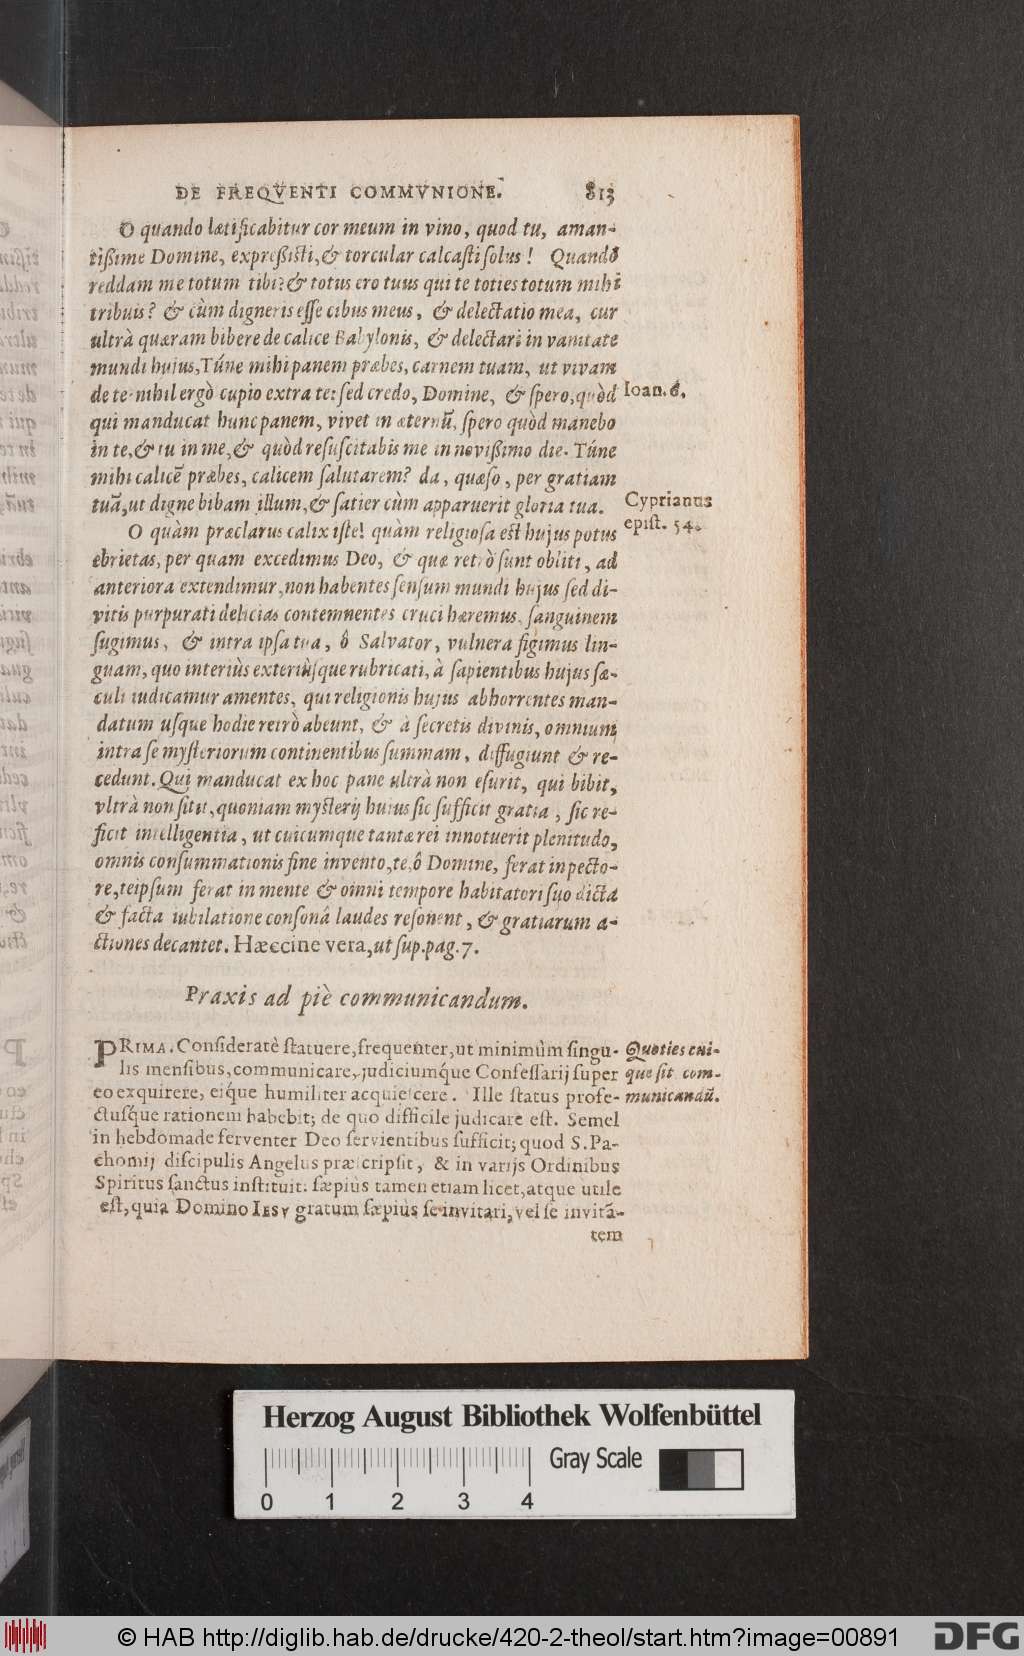 DE FREQVENTI COMMVNIONE. 813
O quando lætificabitur cor meum in vino, quod tu, aman-
tißime Domine, expreßisti, & torcular calcasti solus! Quando
reddam me totum tibi? & totus ero tuus qui te toties totum mihi
tribuis? & cùm digneris esse cibus meus, & delectatio mea, cur
ultrà quæram bibere de calice Babylonis, & delectari in vanitate
mundi hujus, Túne mihi panem præbes, carnem tuam, ut vivam
de te: nihil ergò cupio extra te: sed credo, Domine, & spero, quòd
Ioan. 6.
qui manducat hunc panem, vivet in æternũ, spero quòd manebo
in te, & tu in me, & quòd resuscitabis me in novißimo die. Túne
mihi calicẽ præbes, calicem salutarem? da, quæso, per gratiam
tuã, ut digne bibam illum, & satier cùm apparuerit gloria tua.
Cyprianus
epist. 54.
O quàm præclarus calix iste! quàm religiosa est hujus potus
ebrietas, per quam excedimus Deo, & quæ retrò sunt obliti, ad
anteriora extendimur, non habentes sensum mundi hujus sed di-
vitis purpurati delicias contemnentes cruci hæremus, sanguinem
sugimus, & intra ipsa tua, ô Salvator, vulnera figimus lin-
guam, quo interiùs exteriùsque rubricati, à sapientibus hujus sæ-
culi iudicamur amentes, qui religionis hujus abhorrentes man-
datum usque hodie retrò abeunt, & à secretis divinis, omnium
intra se mysteriorum continentibus summam, diffugiunt & re-
cedunt. Qui manducat ex hoc pane ultrà non esurit, qui bibit,
vltrà non sitit, quoniam mysterij huius sic sufficit gratia, sic re-
ficit intelligentia, ut cuicumque tantæ rei innotuerit plenitudo,
omnis consummationis fine invento, te, ô Domine, ferat in pecto-
re, teipsum ferat in mente & omni tempore habitatori suo dicta
& facta iubilatione consonâ laudes resonent, & gratiarum a-
ctiones decantet. Hæccine vera, ut sup. pag. 7.
Praxis ad piè communicandum.
PRIMA. Consideratè statuere, frequenter, ut minimùm singu-
lis mensibus, communicare, judiciumq́ue Confessarij super
eo exquirere, eiq́ue humiliter acquiescere. Ille status profe-
Quoties cui-
que sit com-
municandũ.
ctusq́ue rationem habebit; de quo difficile judicare est. Semel
in hebdomade ferventer Deo servientibus sufficit; quod S. Pa-
chomij discipulis Angelus præscripsit, & in varijs Ordinibus
Spiritus sanctus instituit: sæpiùs tamen etiam licet, atque utile
est, quia Domino IESV gratum sæpiùs se invitari, vel se invitã-
tem
Herzog August Bibliothek Wolfenbüttel
Gray Scale
0 1 2 3 4
© HAB http://diglib.hab.de/drucke/420-2-theol/start.htm?image=00891
DFG